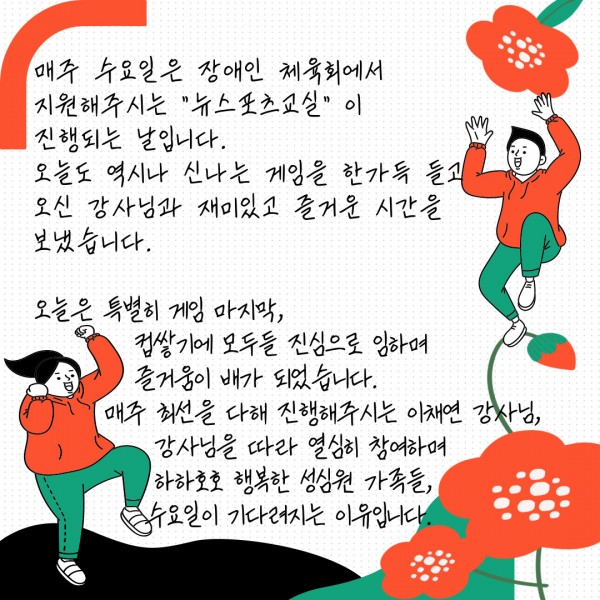 매주 수요일은 장애인 체육회에서
지원해주시는 "뉴스포츠교실" 이
진행되는 날입니다.
오늘도 역시나 신나는 게임을 한가득 들고
오신 강사님과 재미있고 즐거운 시간을
보냈습니다.
오늘은 특별히 게임 마지막,
컵쌓기에 모두들 진심으로 임하며
즐거움이 배가 되었습니다.
매주 최선을 다해 진행해주시는 이채연 강사님,
강사님을 따라 열심히 참여하며
하하호호 행복한 성심원 가족들,
수요일이 기다려지는 이유입니다.